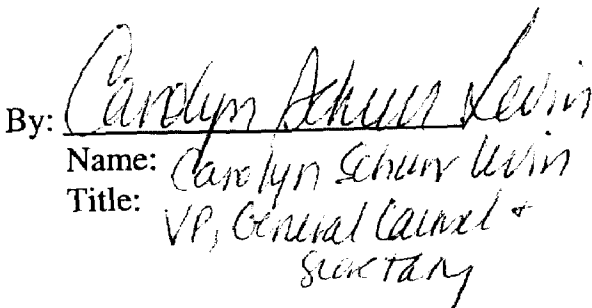 By: Carolyn Schurr Levin
Name: Carolyn Schurr Levin
Title: VP, General Counsel +
Secretary